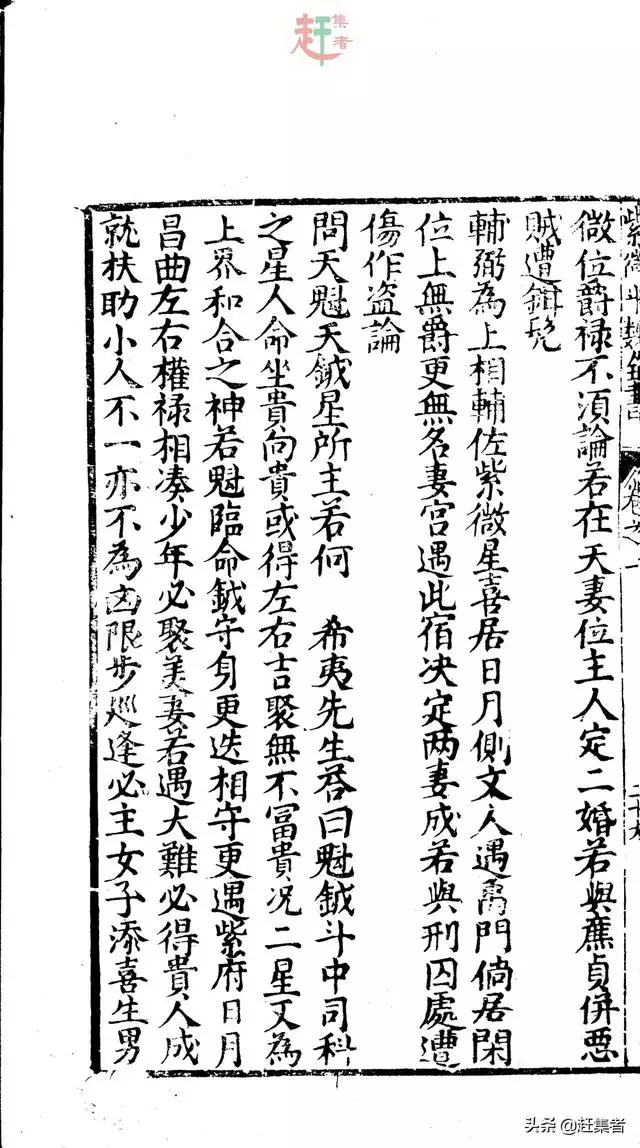 赶集者
紫微斗數全書 卷之一
微位爵禄不須論若在天妻位主人定二婚若與廉貞併惡
賊遭鉗髡
輔弼為上相輔佐紫微星喜居日月側文人遇禹門倘居閑
位上無爵更無名妻宫遇此宿决定两妻成若與刑囚處遭
傷作盗論
問天魁天鉞星所主若何 希夷先生荅曰魁鉞斗中司科
之星人命坐貴向貴或得左右吉聚無不冨貴况二星又為
上界和合之神若魁臨命鉞守身更迭相守更遇紫府日月
昌曲左右權禄相凑少年必聚美妻若遇大難必得貴人成
就扶助小人不一亦不為凶限步巡逢必主女子添喜生男
头条 @赶集者